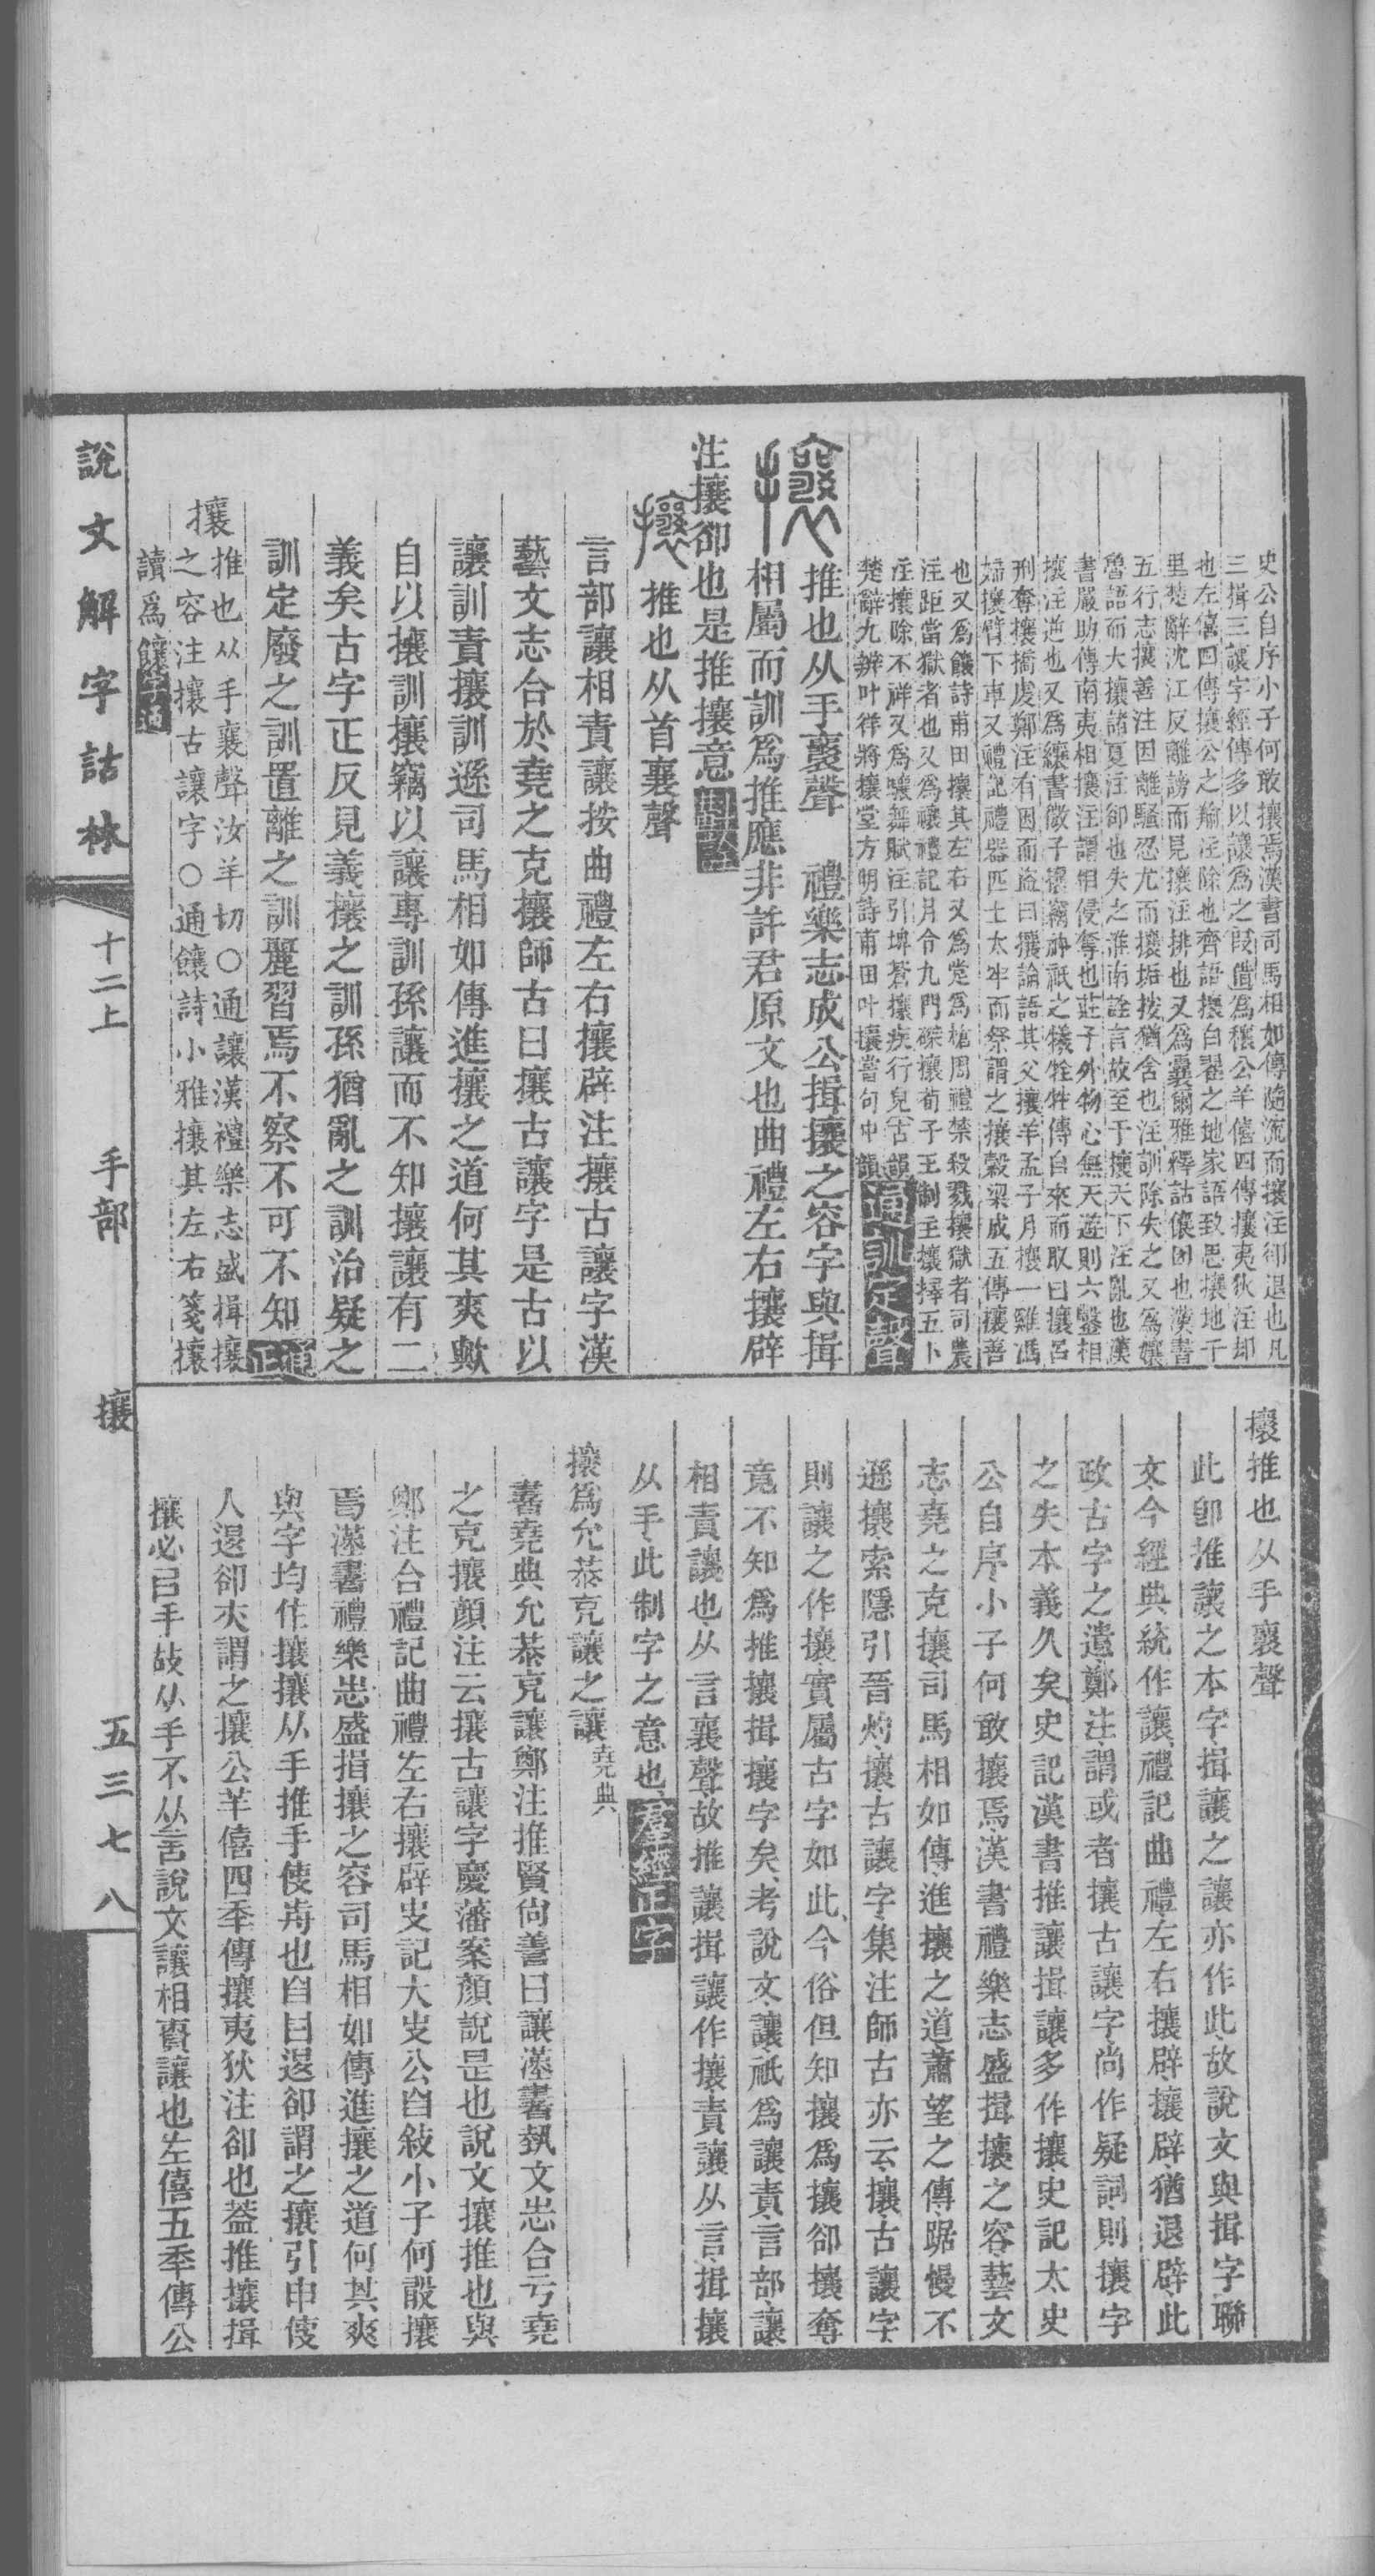 史公自序小子何敢攘焉漢書司馬相如傳隨流而攘注卻退也凡
三揖三讓字經傳多以讓爲之叚借爲穰公羊僖四傳攘夷狄注卻
也左僖四傳攘公之羭注除也齊語攘白翟之地家語致思攘地千
里楚辭沈江反離謗而見攘注排也又爲囊爾雅釋詁儴因也漢書
五行志攘善注因離騷忍尤而攘垢按猶含也注訓除失之又爲孃
魯語而大攘諸夏注卻也失之淮南詮言故至于攘天下注亂也漢
書嚴助傳南夷相攘注謂相侵奪也莊子外物心無天遊則六鑿相
攘注逆也又爲纕書微子攘竊神祇之犧牷牲傳自來而取曰攘呂
刑奪攘撟虔鄭注有因而盜曰攘論語其父攘羊孟子月攘一雞馮
婦攘臂下車又禮記禮器匹士太牢而祭謂之攘穀梁成五傳攘善
也又爲饟詩甫田攘其左右又爲定爲槍周禮禁殺戮攘獄者司農
注距當獄者也又爲禳禮記月令九門磔攘荀子王制主攘擇五卜
注攘除不祥又爲躟舞賦注引埤蒼攘疾行皃古韻
楚辭九辨叶祥將攘堂方明詩甫田叶攘嘗句中韻通訓定聲
攘推也从手襄聲 禮樂志成公揖攘之容字與揖
相屬而訓爲推應非許君原文也曲禮左右攘辟
注攘卻也是推攘意
攘推也从首襄聲
言部讓相責讓按曲禮左右攘辟注攘古讓字漢
藝文志合於堯之克攘師古曰攘古讓字是古以
讓訓責攘訓遜司馬相如傳進攘之道何其爽歟
自以攘訓攘竊以讓專訓孫讓而不知攘讓有二
義矣古字正反見義攘之訓孫猶亂之訓治疑之
訓定廢之訓置離之訓麗習焉不察不可不知
攘推也从手襄聲汝羊切○通讓漢禮樂志盛揖攘
之容注攘古讓字○通饟詩小雅攘其左右箋攘
讀爲饟
說文解字詁林 十二上 手部 攘 五三七八
攘推也从手襄聲
此卽推讓之本字揖讓之讓亦作此故說文與揖字聯
文今經典統作讓禮記曲禮左右攘辟攘辟猶退辟此
政古字之遺鄭注謂或者攘古讓字尚作疑詞則攘字
之失本義久矣史記漢書推讓揖讓多作攘史記太史
公自序小子何敢攘焉漢書禮樂志盛揖攘之容藝文
志堯之克攘司馬相如傳進攘之道蕭望之傳踞慢不
遜攘索隱引晉灼攘古讓字集注師古亦云攘古讓字
則讓之作攘實屬古字如此今俗但知攘爲攘卻攘奪
竟不知爲推攘揖攘字矣考說文讓祇爲讓責言部讓
相責讓也从言襄聲故推讓揖讓作攘責讓从言揖攘
从手此制字之意也羣經正字
攘爲允恭克讓之讓堯典
書堯典允恭克讓鄭注推賢尙善曰讓漢書執文志合亏堯
之克攘顏注云攘古讓字慶藩案顏說是也說文攘推也與
鄭注合禮記曲禮左右攘辟史記大史公自敍小子何敢攘
焉漢書禮樂志盛揖攘之容司馬相如傳進攘之道何其爽
與字均作攘攘从手推手使歬也自㠯退卻謂之攘引申使
人退卻夾謂之攘公羊僖四年傳攘夷狄注卻也葢推攘揖
攘必㠯手故从手不从言說文讓相責讓也左僖五年傳公